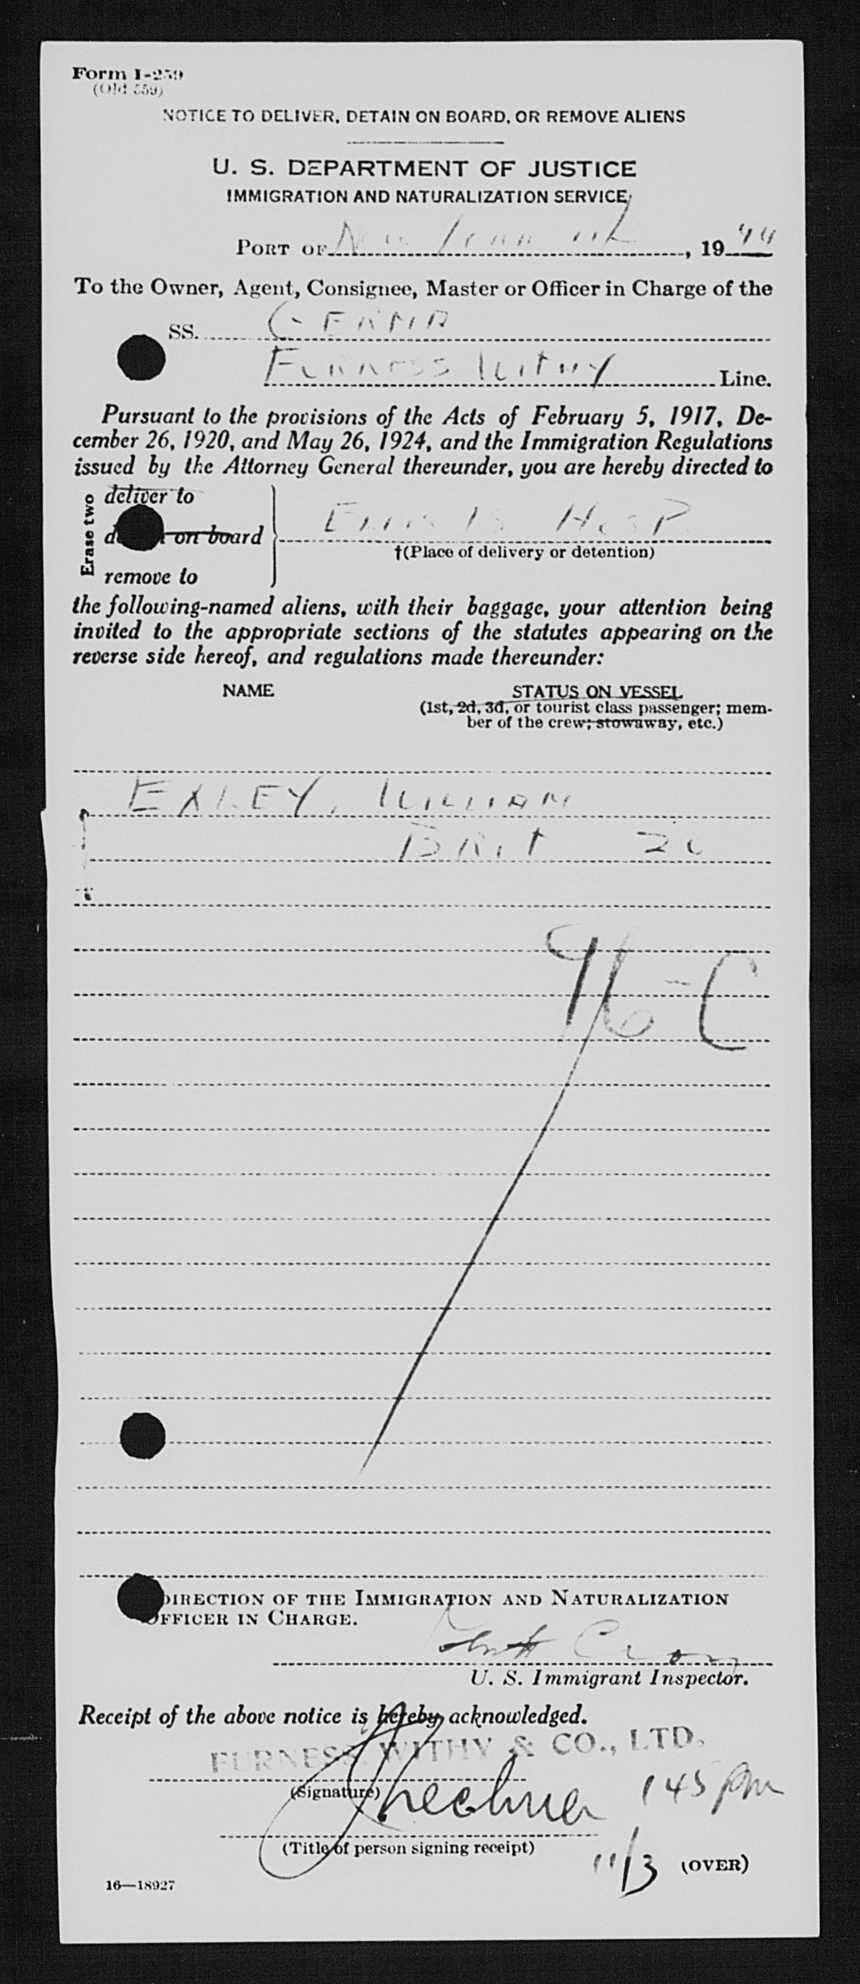 Form I-259
(Old 559)
NOTICE TO DELIVER, DETAIN ON BOARD, OR REMOVE ALIENS
U. S. DEPARTMENT OF JUSTICE
IMMIGRATION AND NATURALIZATION SERVICE
PORT OF New , 19 44
To the Owner, Agent, Consignee, Master or Officer in Charge of the
SS. GERMA
FURNESS WITHY Line.
Pursuant to the provisions of the Acts of February 5, 1917, De-
cember 26, 1920, and May 26, 1924, and the Immigration Regulations
issued by the Attorney General thereunder, you are hereby directed to
Erase two
deliver to
on board ELLIS IS HOSP
†(Place of delivery or detention)
remove to
the following-named aliens, with their baggage, your attention being
invited to the appropriate sections of the statutes appearing on the
reverse side hereof, and regulations made thereunder:
NAME STATUS ON VESSEL
(1st, 2d, 3d, or tourist class passenger; mem-
ber of the crew; stowaway, etc.)
EXLEY, WILLIAM
BRIT 20
96-C
DIRECTION OF THE IMMIGRATION AND NATURALIZATION
OFFICER IN CHARGE.
U. S. Immigrant Inspector.
Receipt of the above notice is hereby acknowledged.
FURNESS WITHY & CO., LTD.
(Signature) 145 pm
(Title of person signing receipt)
11/3 (OVER)
16—18927